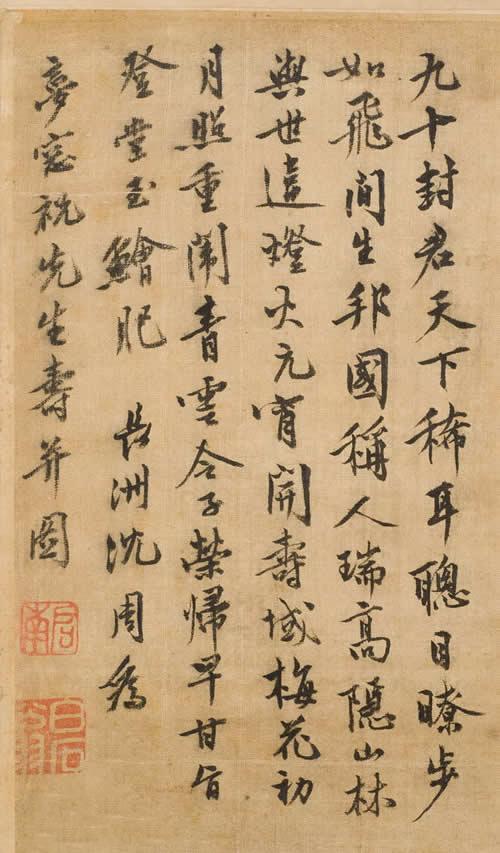 九十封君天下稀耳聰目瞭步
如飛间生邦國稱人瑞高隱山林
與世違燈火元宵開壽域梅花初
月照重闈青雲令子榮歸早甘旨
登堂玉鱠肥 長洲沈周為
夢窓祝先生壽并圖
啟南
白石翁